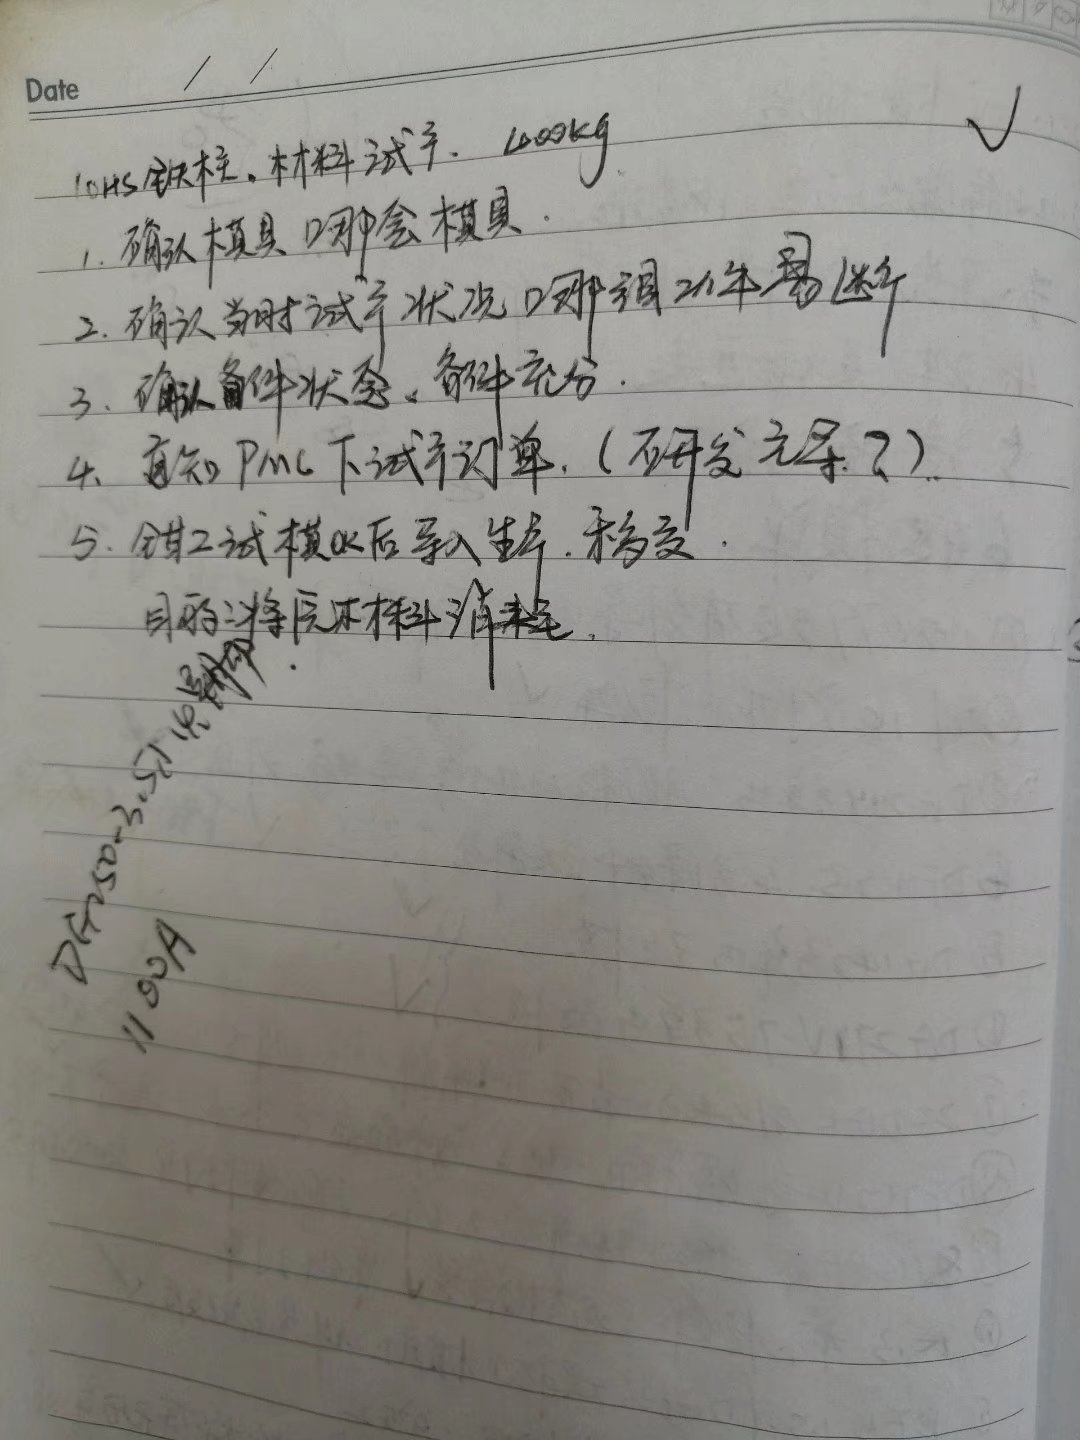 Date / /
10HS铁柱。材料试产. 400kg
1. 确认模具 哪套模具.
2. 确认当时试产状况 哪项 易断
3. 确认备件状态、备件充分.
4. 通知PMC下试产订单.(研发 ?)..
5. 钳工试模OK后导入生产.移交.
目的:将原材料消耗完.
3.5
1100A